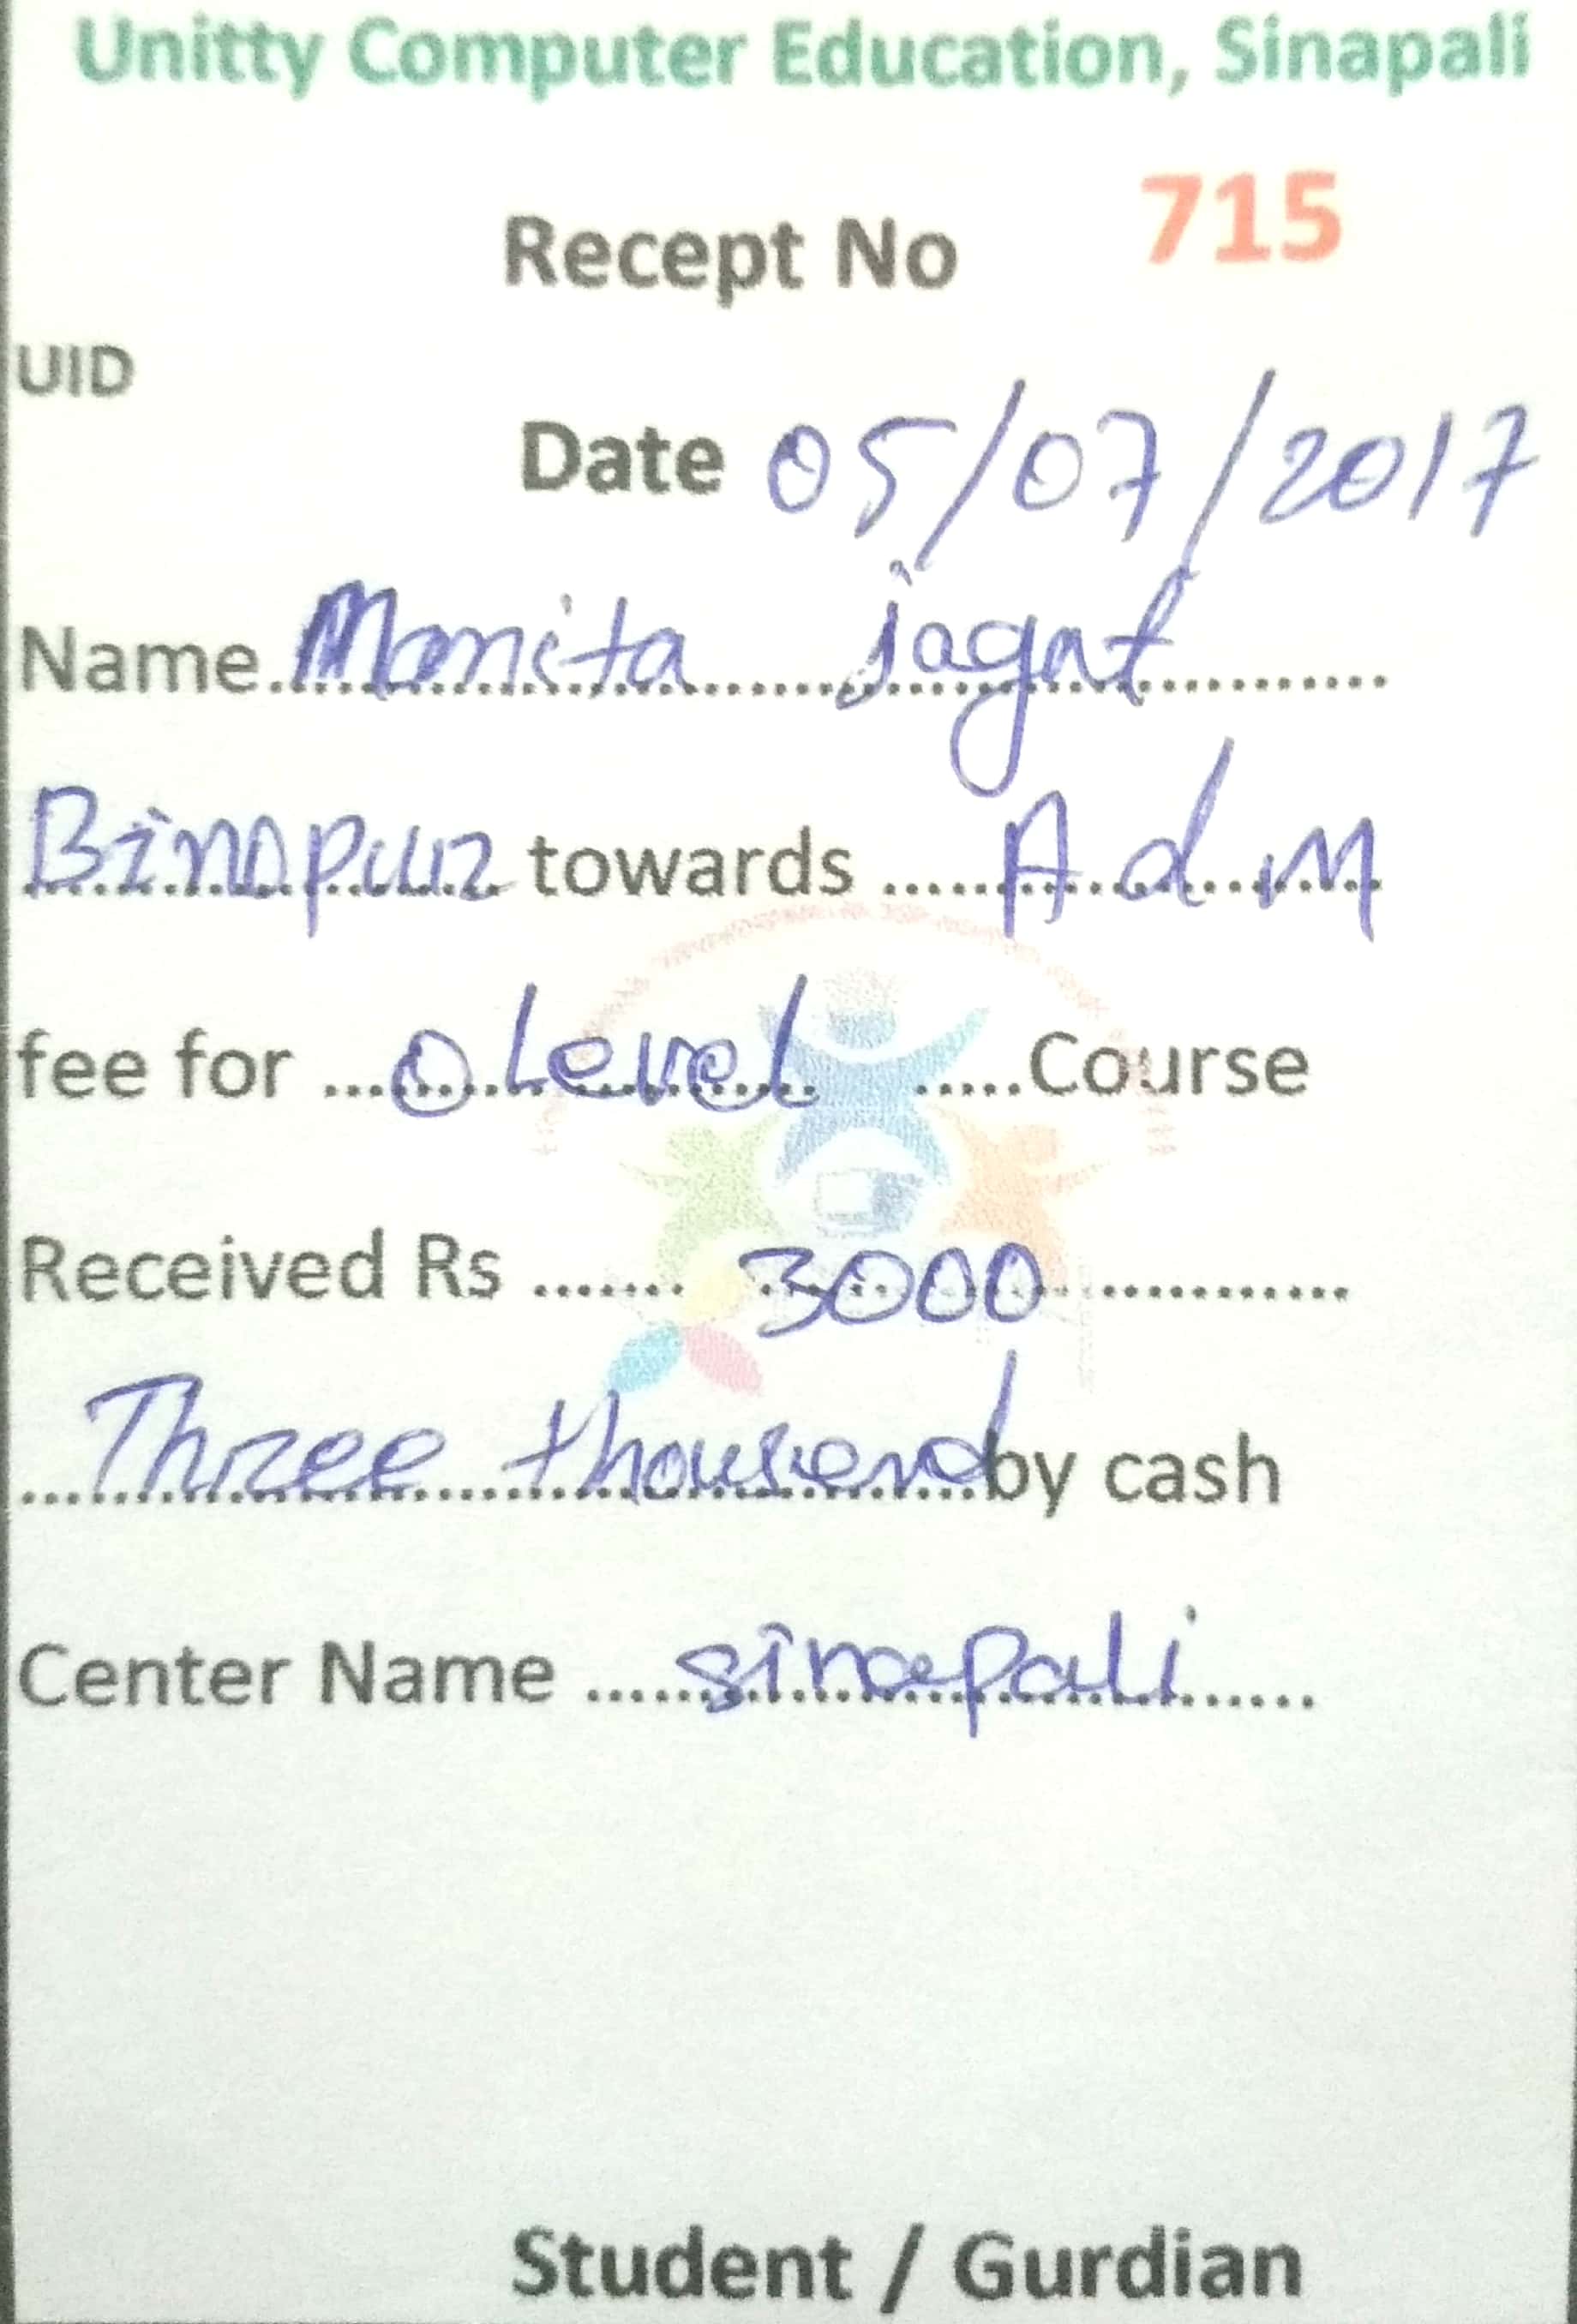 Unitty Computer Education, Sinapali
Recept No 715
UID
Date 05/07/2017
Name Manita jagat
Binapur towards Adm
fee for o Level Course
Received Rs 3000
Three thousend by cash
Center Name sinapali
Student / Gurdian